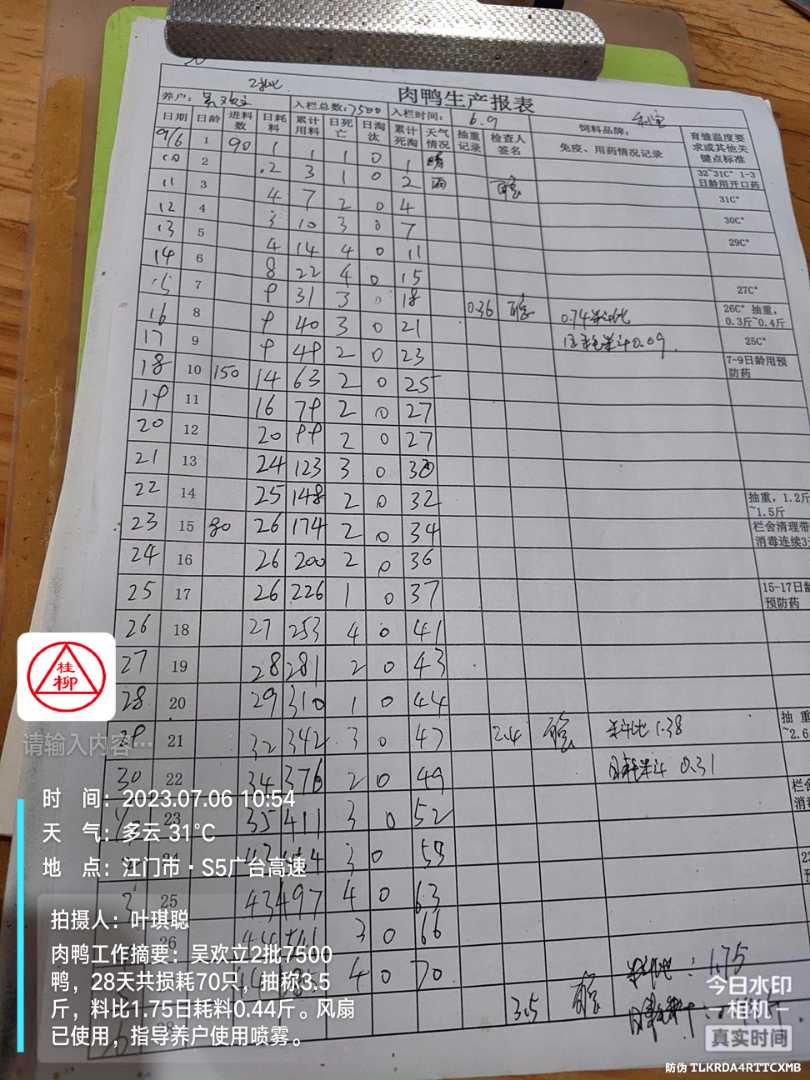 2批
肉鸭生产报表
养户: 入栏总数: 7500 入栏时间: 6.9 饲料品牌:
日期 日龄 进料数 日耗料 累计用料 日死亡 日淘汰 累计死淘 天气情况 抽重记录 检查人签名 免疫、用药情况记录 育雏温度要求或其他关键点标准
9/6 1 90 1 1 1 0 1 晴 32~31C° 1-3日龄用开口药
10 2 2 3 1 0 2 雨
11 3 4 7 2 0 4 31C°
12 4 3 10 3 0 7 30C°
13 5 4 14 4 0 11 29C°
14 6 8 22 4 0 15
15 7 9 31 3 0 18 0.36 27C°
16 8 9 40 3 0 21 0.74料肉比 26C° 抽重,0.3斤~0.4斤
17 9 9 49 2 0 23 日耗料斗0.09 25C°
18 10 150 14 63 2 0 25 7-9日龄用预防药
19 11 16 79 2 0 27
20 12 20 99 2 0 27
21 13 24 123 3 0 30
22 14 25 148 2 0 32 抽重，1.2斤~1.5斤
23 15 80 26 174 2 0 34 栏舍清理带 消毒连续3
24 16 26 200 2 0 36
25 17 26 226 1 0 37 15-17日龄 预防药
26 18 27 253 4 0 41
27 19 28 281 2 0 43
28 20 29 310 1 0 44
29 21 32 342 3 0 47 2.4 料肉比 1.38 抽重 ~2.6
30 22 34 376 2 0 49 日耗料斗 0.31
23 35 411 3 0 52 栏舍
3 0 55
25 43 497 4 0 63
26 3 0 66
4 0 70 : 1.75
3.5
桂柳
请输入内容…
时 间: 2023.07.06 10:54
天 气: 多云 31°C
地 点: 江门市·S5广台高速
拍摄人: 叶琪聪
肉鸭工作摘要: 吴欢立2批7500
鸭，28天共损耗70只，抽称3.5
斤，料比1.75日耗料0.44斤。风扇
已使用，指导养户使用喷雾。
今日水印
相机
真实时间
防伪 TLKRDA4RTTCXMB